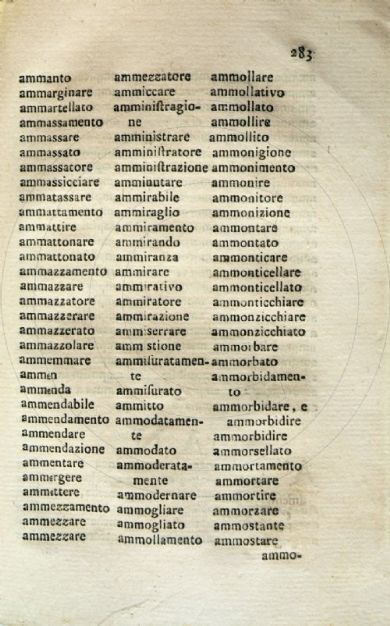 283
ammanto
ammarginare
ammartellato
ammassamento
ammassare
ammassato
ammassatore
ammassicciare
ammatassare
ammattamento
ammattire
ammattonare
ammattonato
ammazzamento
ammazzare
ammazzatore
ammazzerare
ammazzerato
ammazzolare
ammemmare
ammen
ammenda
ammendabile
ammendamento
ammendare
ammendazione
ammentare
ammergere
ammettere
ammezzamento
ammezzare
ammezzare
ammezzatore
ammiccare
amminiſtragio-
ne
amminiſtrare
amminiſtratore
amminiſtrazione
amminutare
ammirabile
ammiraglio
ammiramento
ammirando
ammiranza
ammirare
ammirativo
ammiratore
ammirazione
ammiserrare
ammistione
ammiſuratamen-
te
ammiſurato
ammitto
ammodatamen-
te
ammodato
ammoderata-
mente
ammodernare
ammogliare
ammogliato
ammollamento
ammollare
ammollativo
ammollato
ammollire
ammollito
ammonigione
ammonimento
ammonire
ammonitore
ammonizione
ammontare
ammontato
ammonticare
ammonticellare
ammonticellato
ammonticchiare
ammonzicchiare
ammonzicchiato
ammorbare
ammorbato
ammorbidamen-
to
ammorbidare, e
ammorbidire
ammorbidire
ammorsellato
ammortamento
ammortare
ammortire
ammorzare
ammostante
ammostare
ammo-